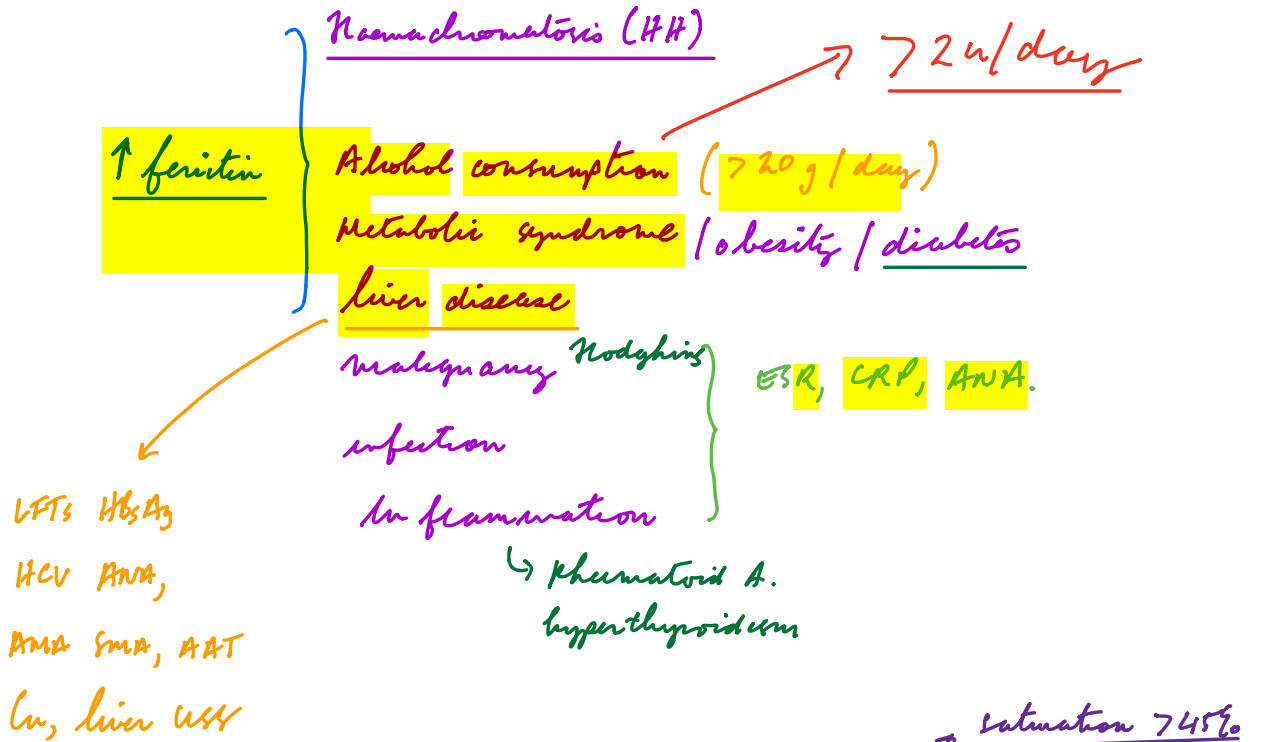 Haemachromatosis (HH)
>2u/day
↑ ferritin
Alcohol consumption (>20g/day)
Metabolic syndrome /obesity/diabetes
liver disease
malignancy Hodghins
ESR, CRP, ANA.
infection
Inflammation
LFTs HBsAg
HCV ANA,
↳ Rheumatoid A.
hyperthyroidism
AMA SMA, AAT
Cu, liver USS
saturation >45%